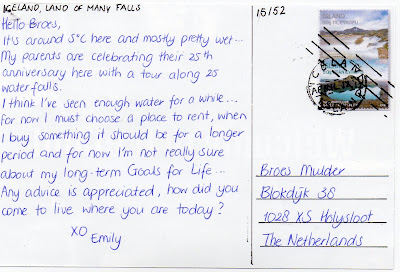 ICELAND, LAND OF MANY FALLS
Hello Broes,
It's around 5°C here and mostly pretty wet...
My parents are celebrating their 25th
anniversary here with a tour along 25
waterfalls.
I think I've seen enough water for a while...
For now I must choose a place to rent, when
I buy something it should be for a longer
period and for now I'm not really sure
about my long-term Goals for Life...
Any advice is appreciated, how did you
come to live where you are today?
XO
Emily
15/52
ÍSLAND
Broes Mulder
Blokdijk 38
1028 XS Holysloot
The Netherlands